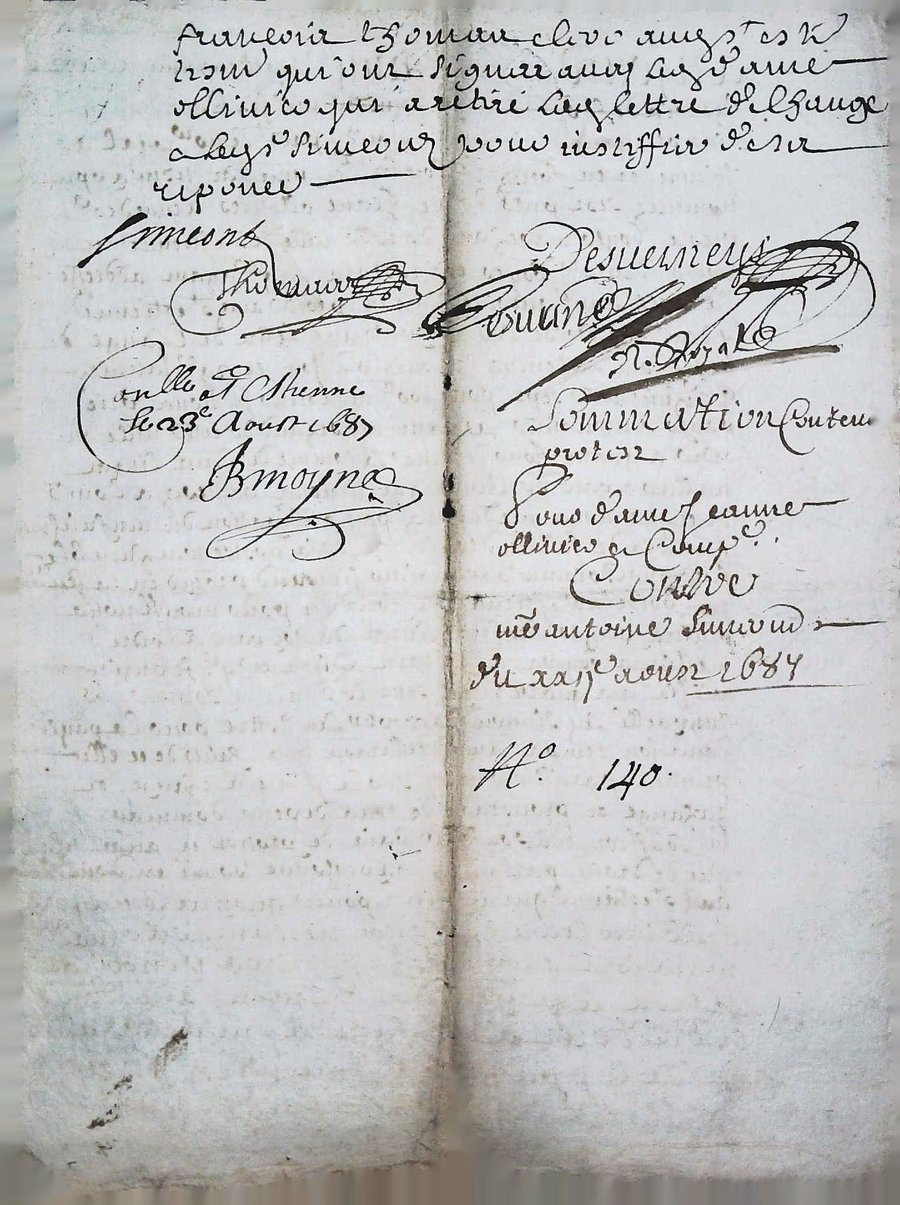 françois thomas clerc aud
qui ont signez avec lad dame
ollivier qui a retiré lad lettre de change
aud Simeond pour justiffier de sa
reponce
Simeond
Thomas
Desverneys
N. Royal
Conlle a St Estienne
le 23e Aoust 1687
Bmoyne
Sommation Conten
protest
Pour dame Jeanne
ollivier et Compe
Contre
me antoine Simeond
du xxiie aoust 1687
No 140